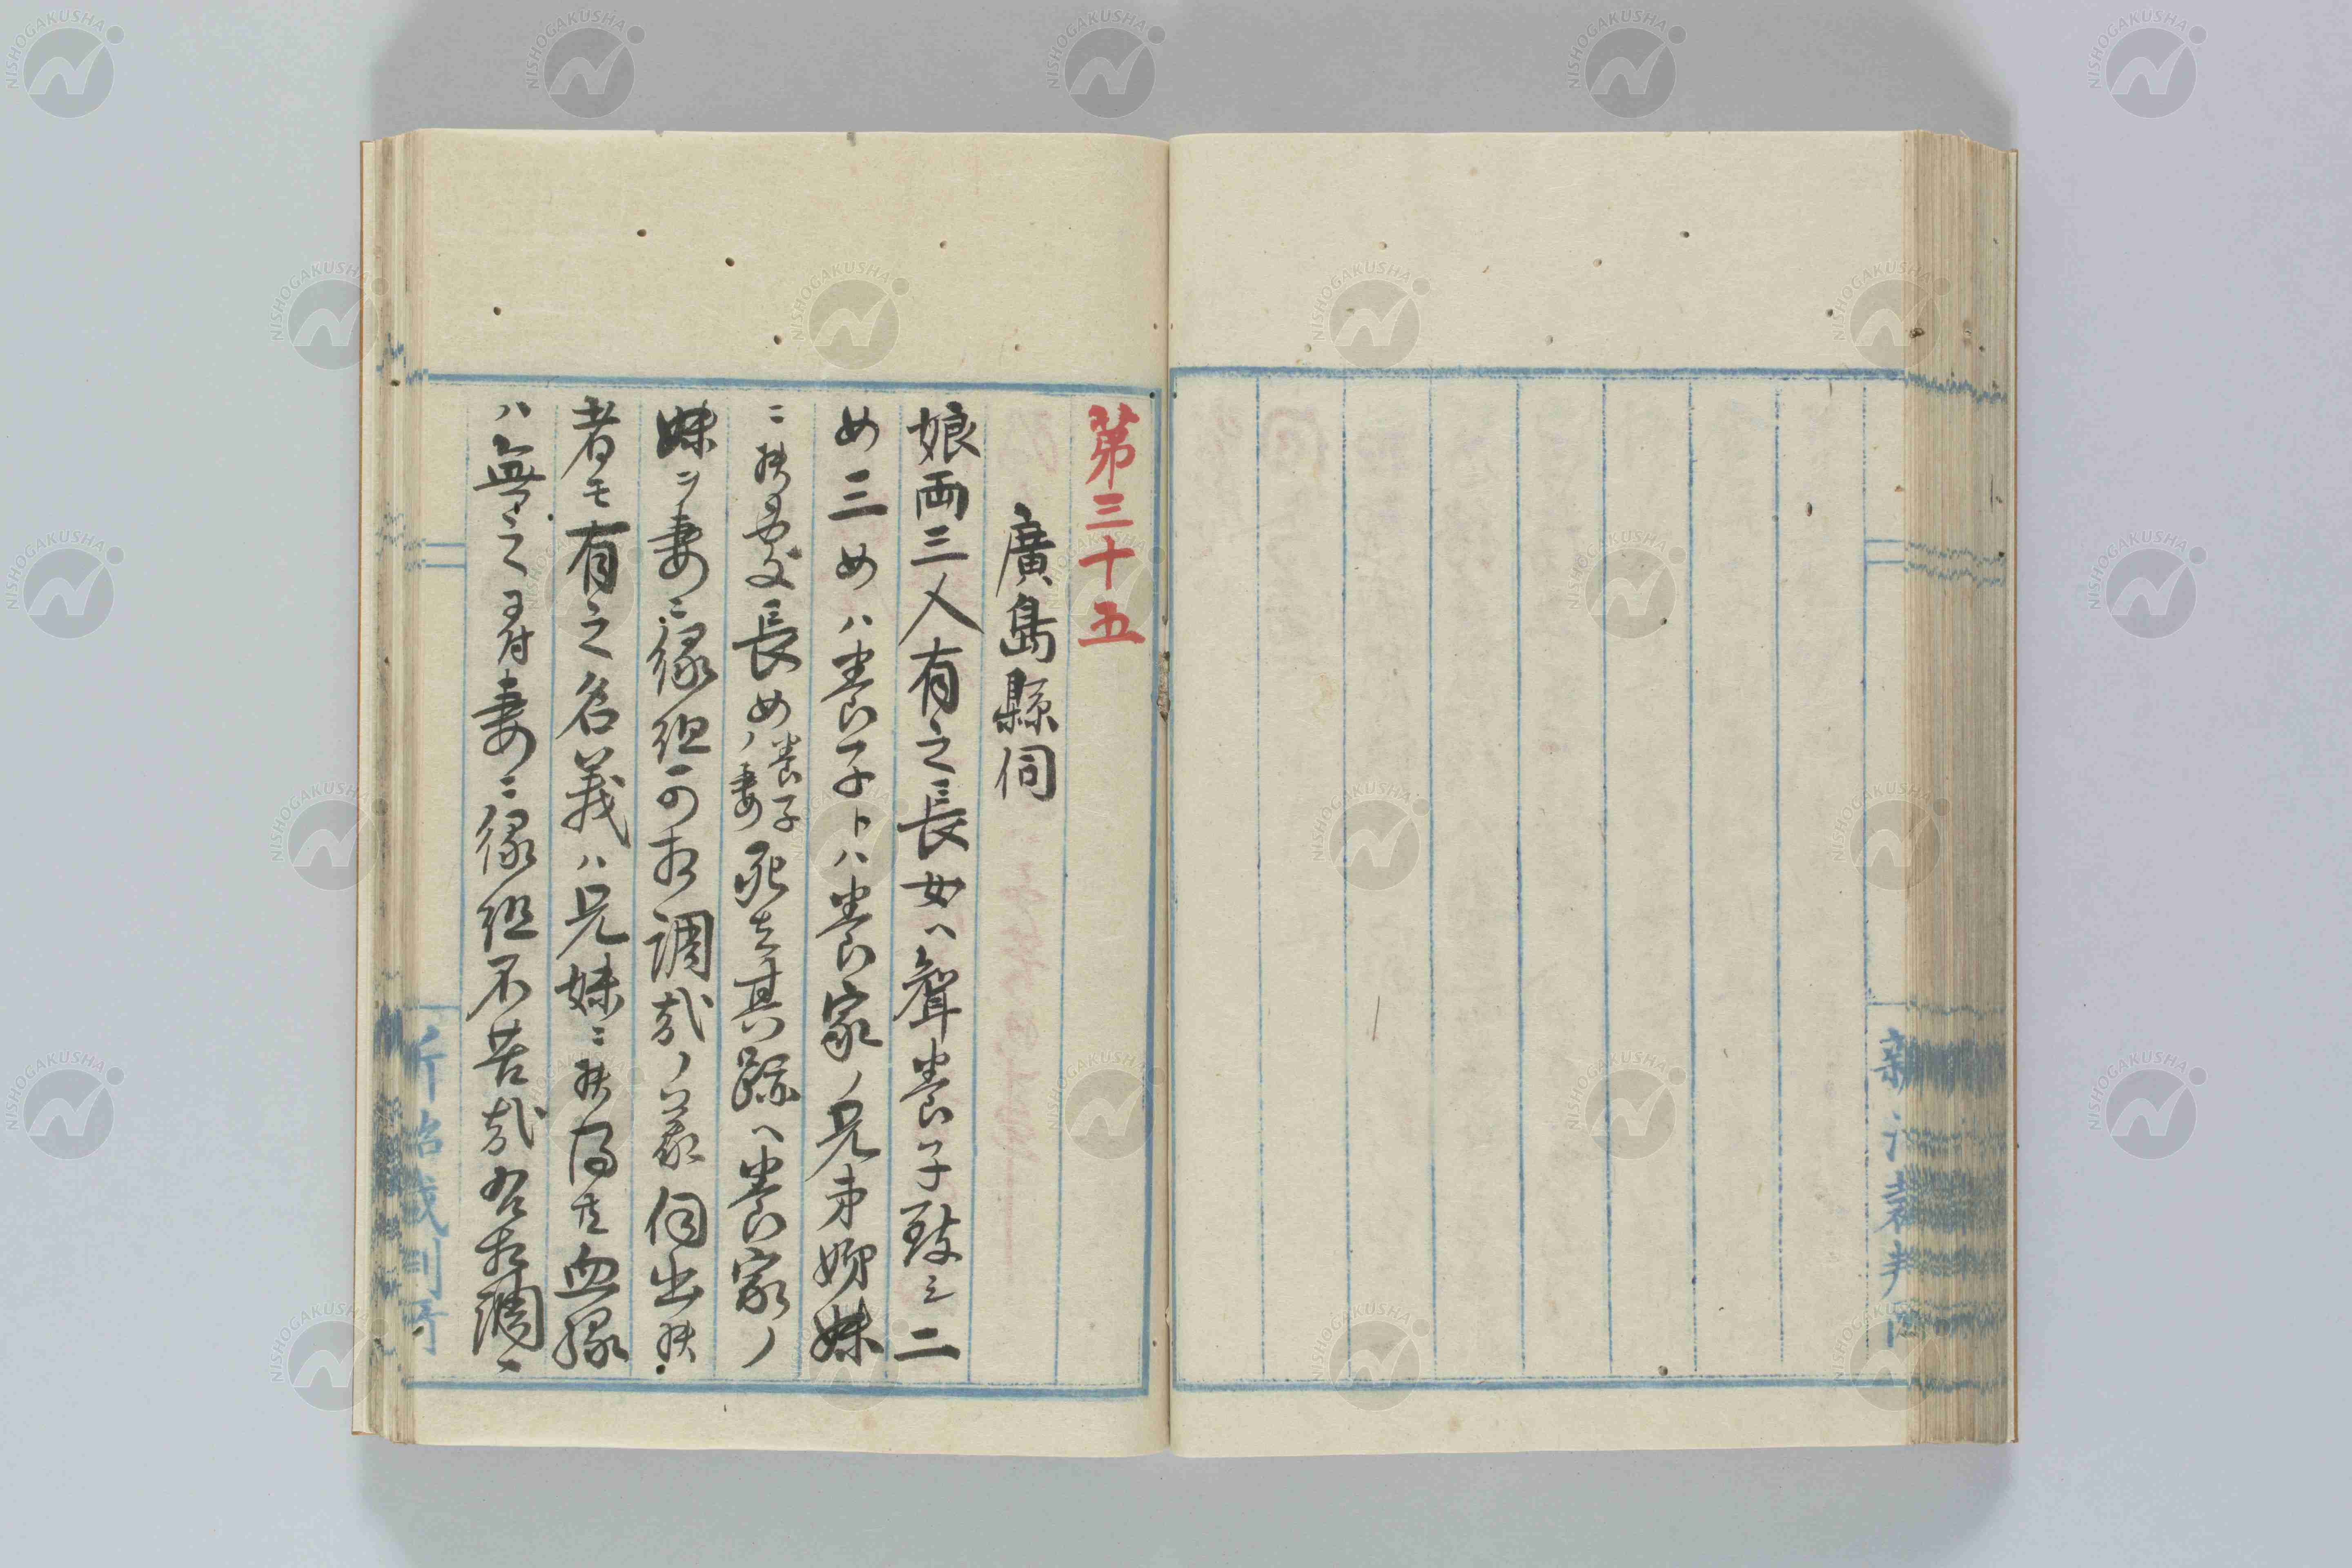 第三十五
廣島縣伺
娘両三人有之長女ヘ聟養子致シ二
女三女ハ養子トハ養家ノ兄弟姉妹
ニ候処長女養子ノ妻死去其跡ヘ養家ノ
妹ヲ妻ニ縁組可相調哉ノ義伺出候
者モ有之名義ハ兄妹ニ候得共血縁
ハ無之ニ付妻ニ縁組不苦哉為相調
新治裁判所
NISHOGAKUSHA